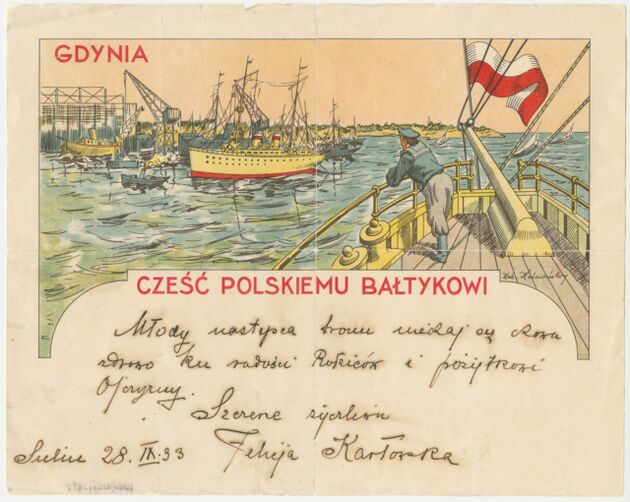 GDYNIA
CZEŚĆ POLSKIEMU BAŁTYKOWI
Młody następca tronu niechaj się chowa
zdrowo ku radości Rodziców i pożytkowi
Ojczyzny.
Szczere życzliwa
28. IX. 33 Felicja Karłowska